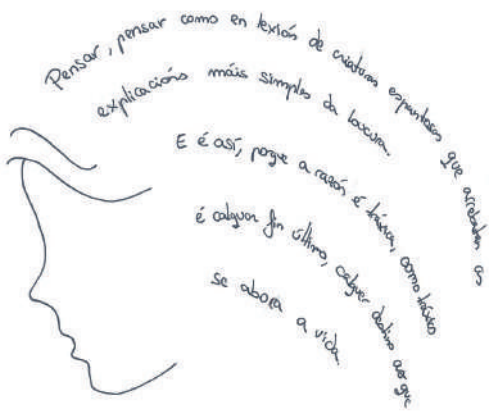 Pensar, pensar como en lexións de criaturas espantosas que arrebatan as
explicacións máis simples da loucura.
E é así, porque a razón é tráxica, como tráxico
é calquera fin último, calquer destino ao que
se aboca a vida.